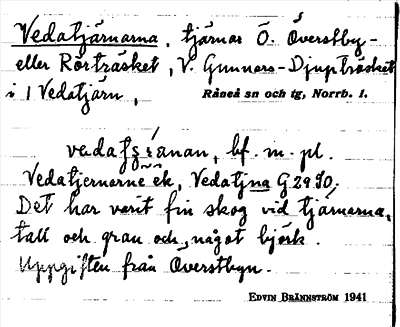 Vedatjärnarna, tjärnar Ö. Överstby-
eller Rörträsket, V. Gunnars-Djupträsket
i 1 Vedatjärn, Råneå sn och tg, Norrb. l.
bf. m. pl.
Vedatjernerne ek, Vedatjna G 29 SO.
Det har varit fin skog vid tjärnarna,
tall och gran och något björk.
Uppgiften från Överstbyn.
EDVIN BRÄNNSTRÖM 1941